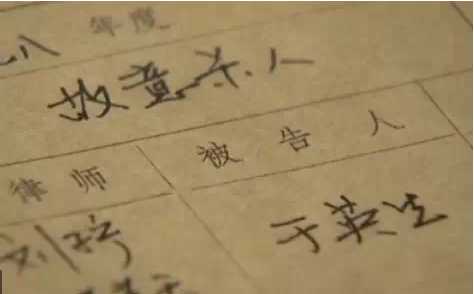 八 年度
故意杀人
律师 被告人
刘 于英生